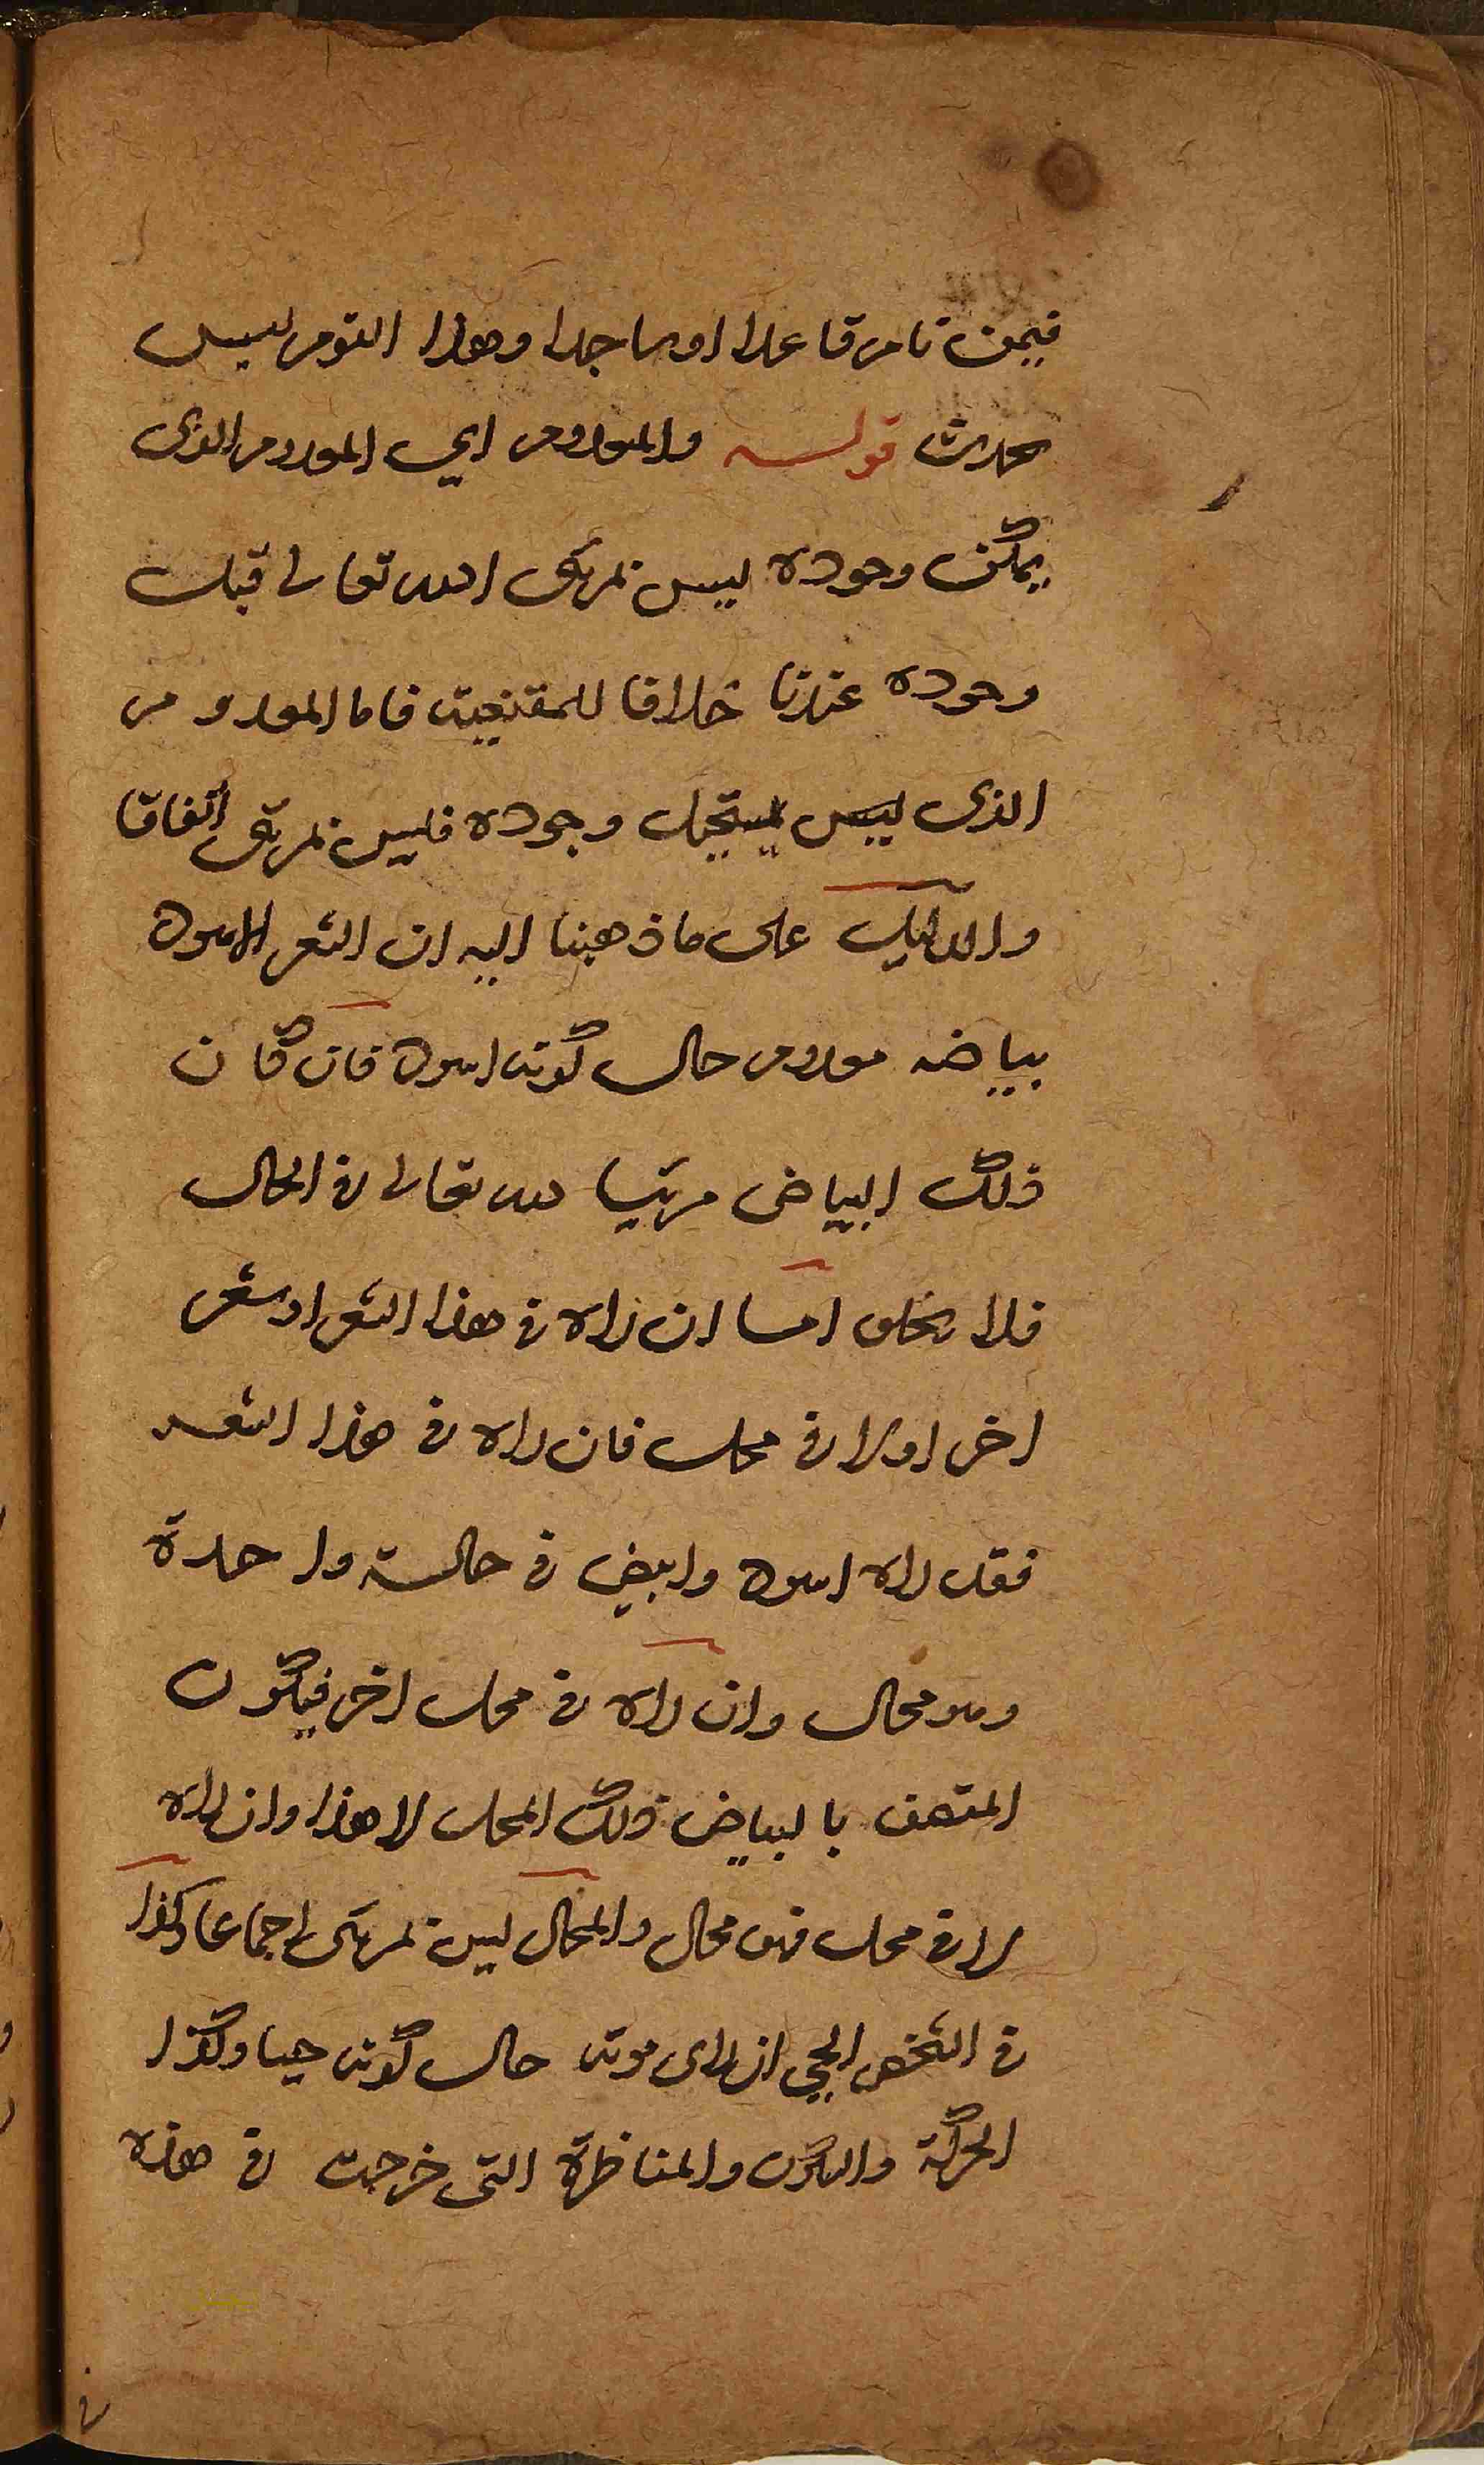 فيمن نام قاعدا او ساجدا وهذا النوم ليس
بحدث قوله والمعدوم اي المعدوم الذى
يمكن وجوده ليس بمرئى الله تعالى قبل
وجوده عندنا خلافا للمقنعية فاما المعدوم
الذى ليس يستحيل وجوده فليس بمرئى اتفاقا
والدليل على ما ذهبنا اليه ان الشعر الاسود
بياضه معدوم حال كونه اسود فان كان
ذلك البياض مرئيا لله تعالى فى الحال
فلا يخلو اما ان راه فى هذا الشعر او شعر
اخر او لا فى محل فان راه فى هذا الشعر
فقد راه اسود وابيض فى حالة واحدة
وهو محال وان راه فى محل اخر فيكون
المتصف بالبياض ذلك المحل لا هذا وان راه
لا فى محل فهو محال والمحال ليس بمرئى اجماعا وكذا
فى الشخص الحي ان راى موته حال كونه حيا وكذا
الحركة والسكون والمناظرة التى خرجت فى هذه